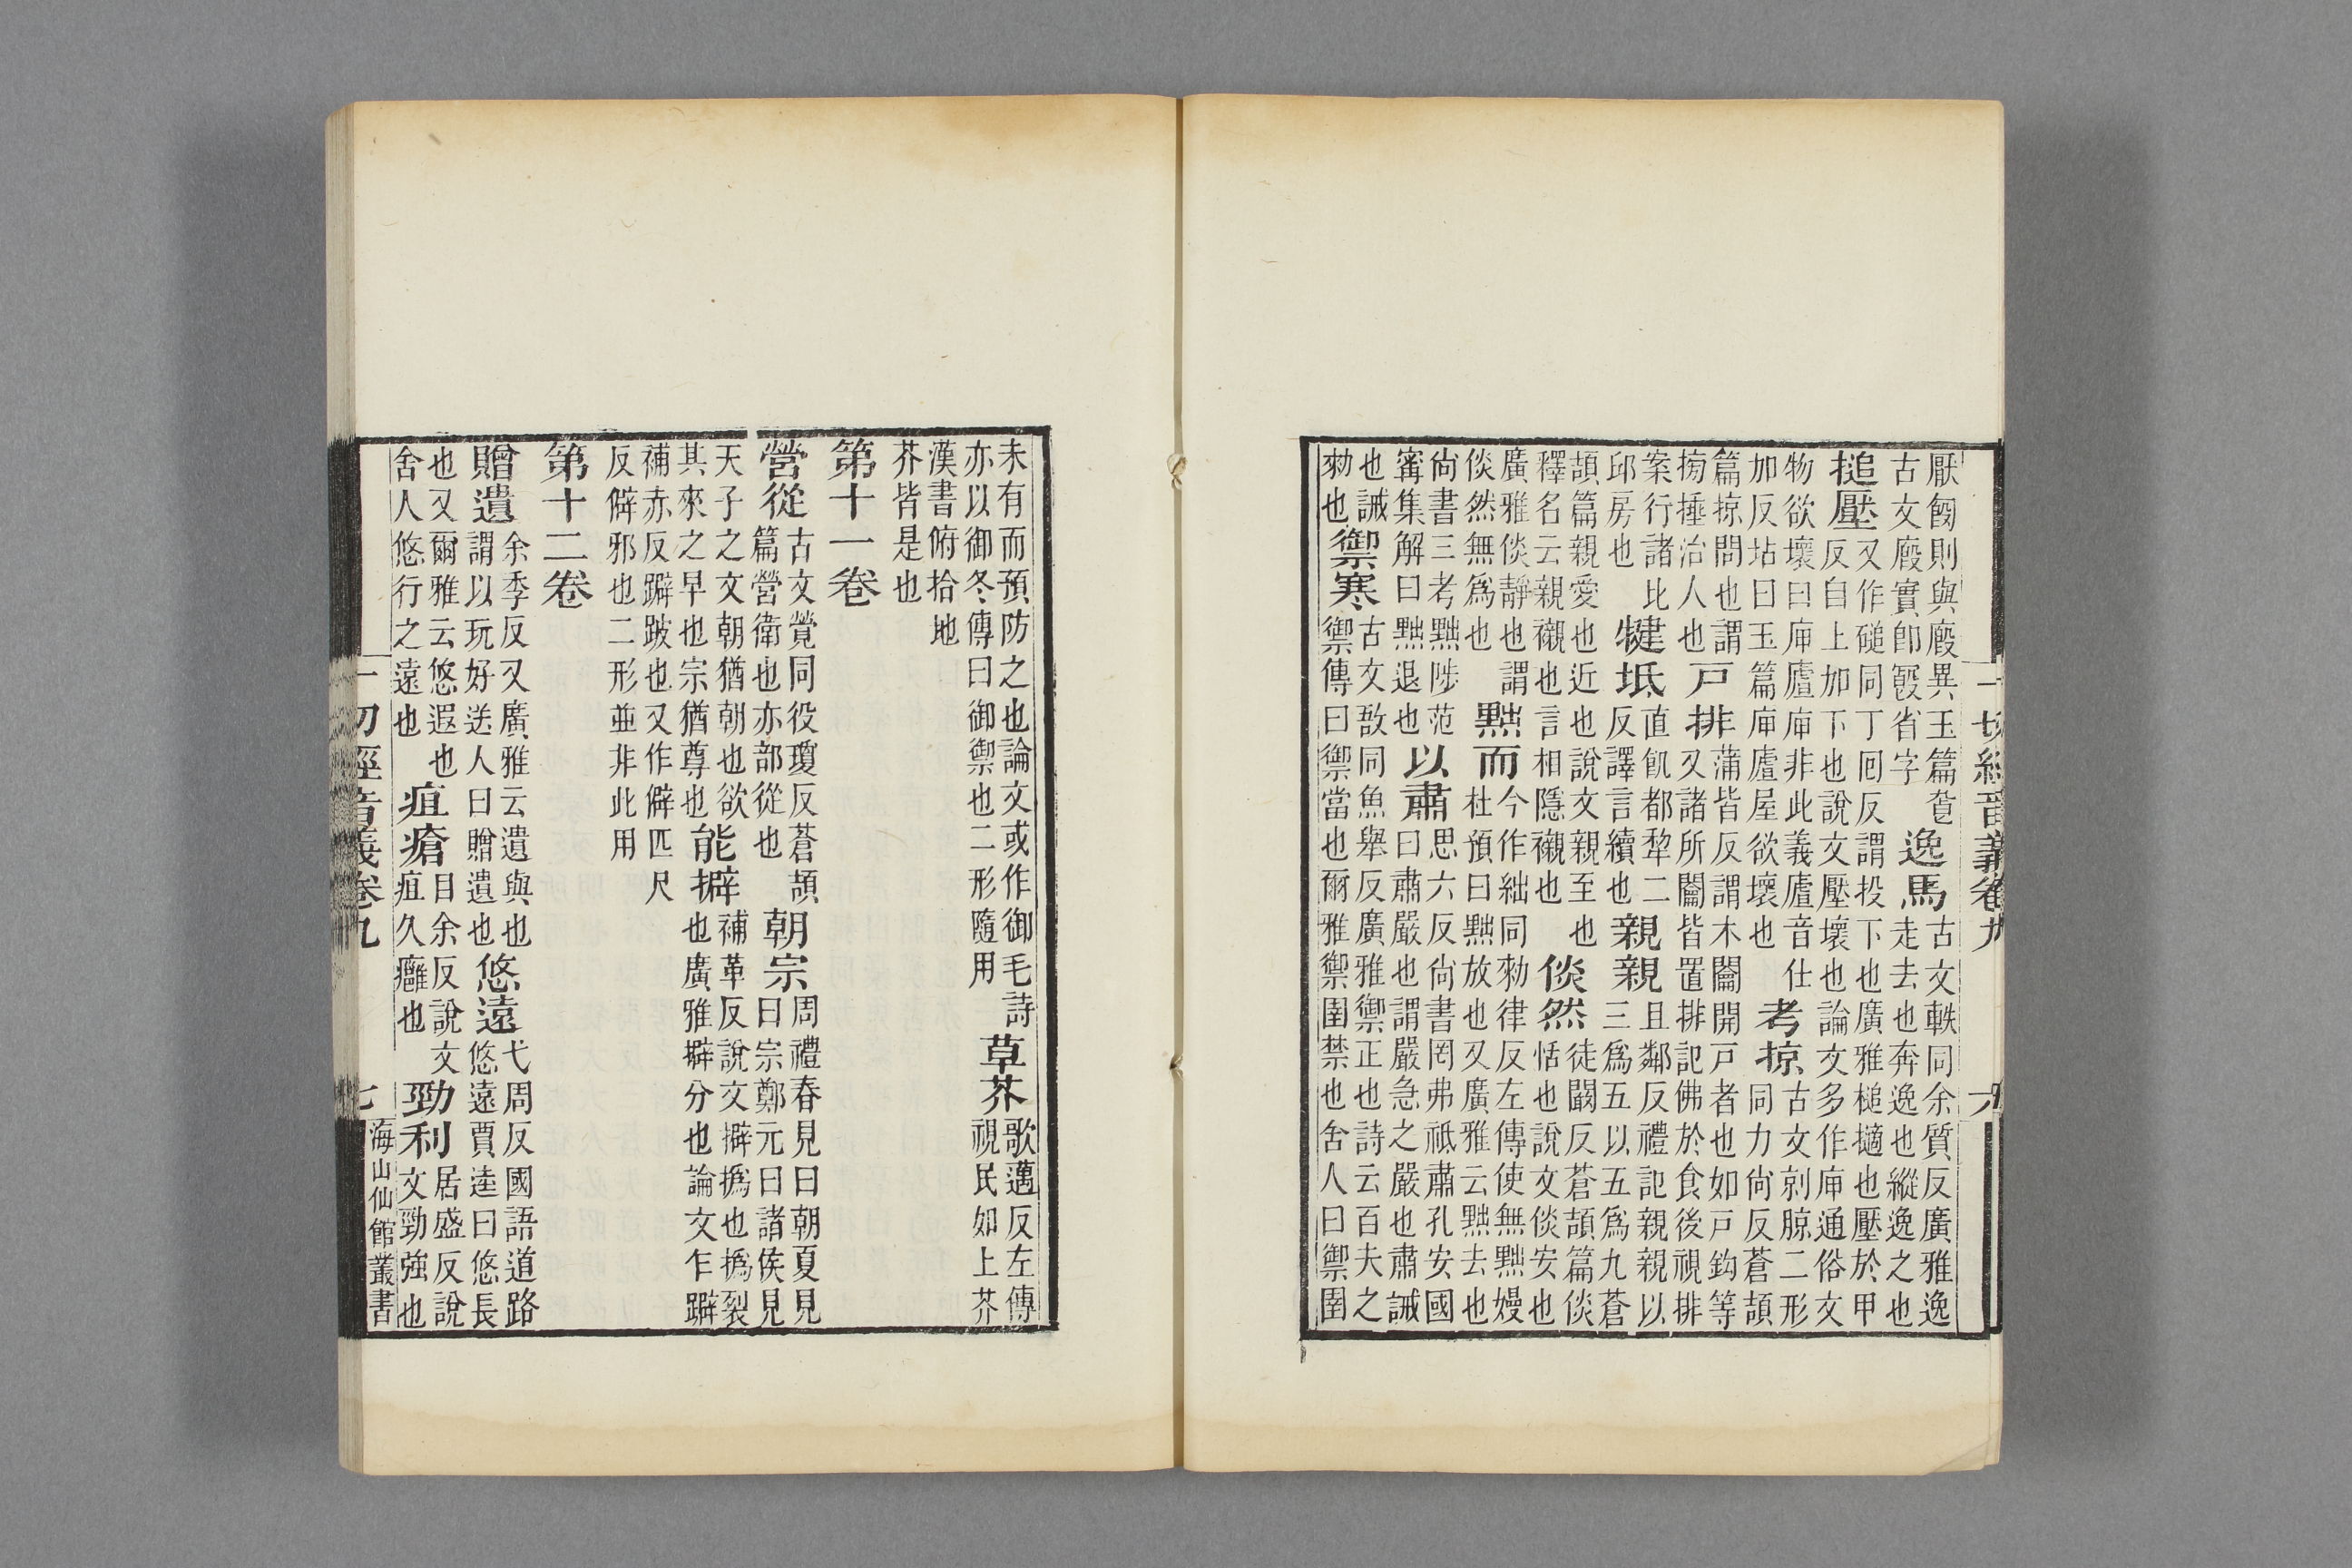 一切經音義卷九
六
厭飼則與廏異玉篇
古文廏實卽省字
逸馬
古文軼同余質反廣雅逸
走去也奔逸也縱逸之也
搥壓
又作磓同丁回反謂投下也廣雅槌擿也壓於甲
反自上加下也說文壓壞也論文多作㡴通俗文
物欲壞曰㡴廬㡴非此義廬音仕
加反坫曰玉篇㡴廬屋欲壞也
考掠
古文剠䝶二形
同力尙反蒼頡
篇掠問也謂
搒捶治人也
戸排
蒲皆反謂木闔開戸者也如戸鈎等
又諸所闔皆置排記佛於食後視排
案行諸比
邱房也
犍坻
直飢都犂二
反譯言續也
親親
且鄰反禮記親親以
三爲五以五爲九蒼
頡篇親愛也近也說文親至也
釋名云親襯也言相隱襯也
倓然
徒闞反蒼頡篇倓
恬也說文倓安也
廣雅倓靜也謂
倓然無爲也
黜而
今作絀同勑律反左傳使無黜嫚
杜預曰黜放也又廣雅云黜去也
尙書三考黜陟范
甯集解曰黜退也
以肅
思六反尙書罔弗祗肅孔安國
曰肅嚴也謂嚴急之嚴也肅誡
也誡
勑也
禦寒
古文敔同魚舉反廣雅禦正也詩云百夫之
禦傳曰禦當也爾雅禦圉禁也舍人曰禦圉
未有而預防之也論文或作御毛詩
亦以御冬傳曰御禦也二形隨用
草芥
歌邁反左傳
視民如上芥
漢書俯拾地
芥皆是也
第十一卷
營從
古文覮同役瓊反蒼頡
篇營衛也亦部從也
朝宗
周禮春見曰朝夏見
曰宗鄭元曰諸侯見
天子之文朝猶朝也欲
其來之早也宗猶尊也
能擗
補革反說文擗撝也撝裂
也廣雅擗分也論文乍躃
補赤反躃跛也又作僻匹尺
反僻邪也二形並非此用
第十二卷
贈遺
余季反又廣雅云遺與也
謂以玩好送人曰贈遺也
悠遠
弋周反國語道路
悠遠賈逵曰悠長
也又爾雅云悠遐也
舍人悠行之遠也
疽瘡
且余反說文
疽久癰也
勁利
居盛反說
文勁強也
一切經音義卷九
七
海山仙館叢書